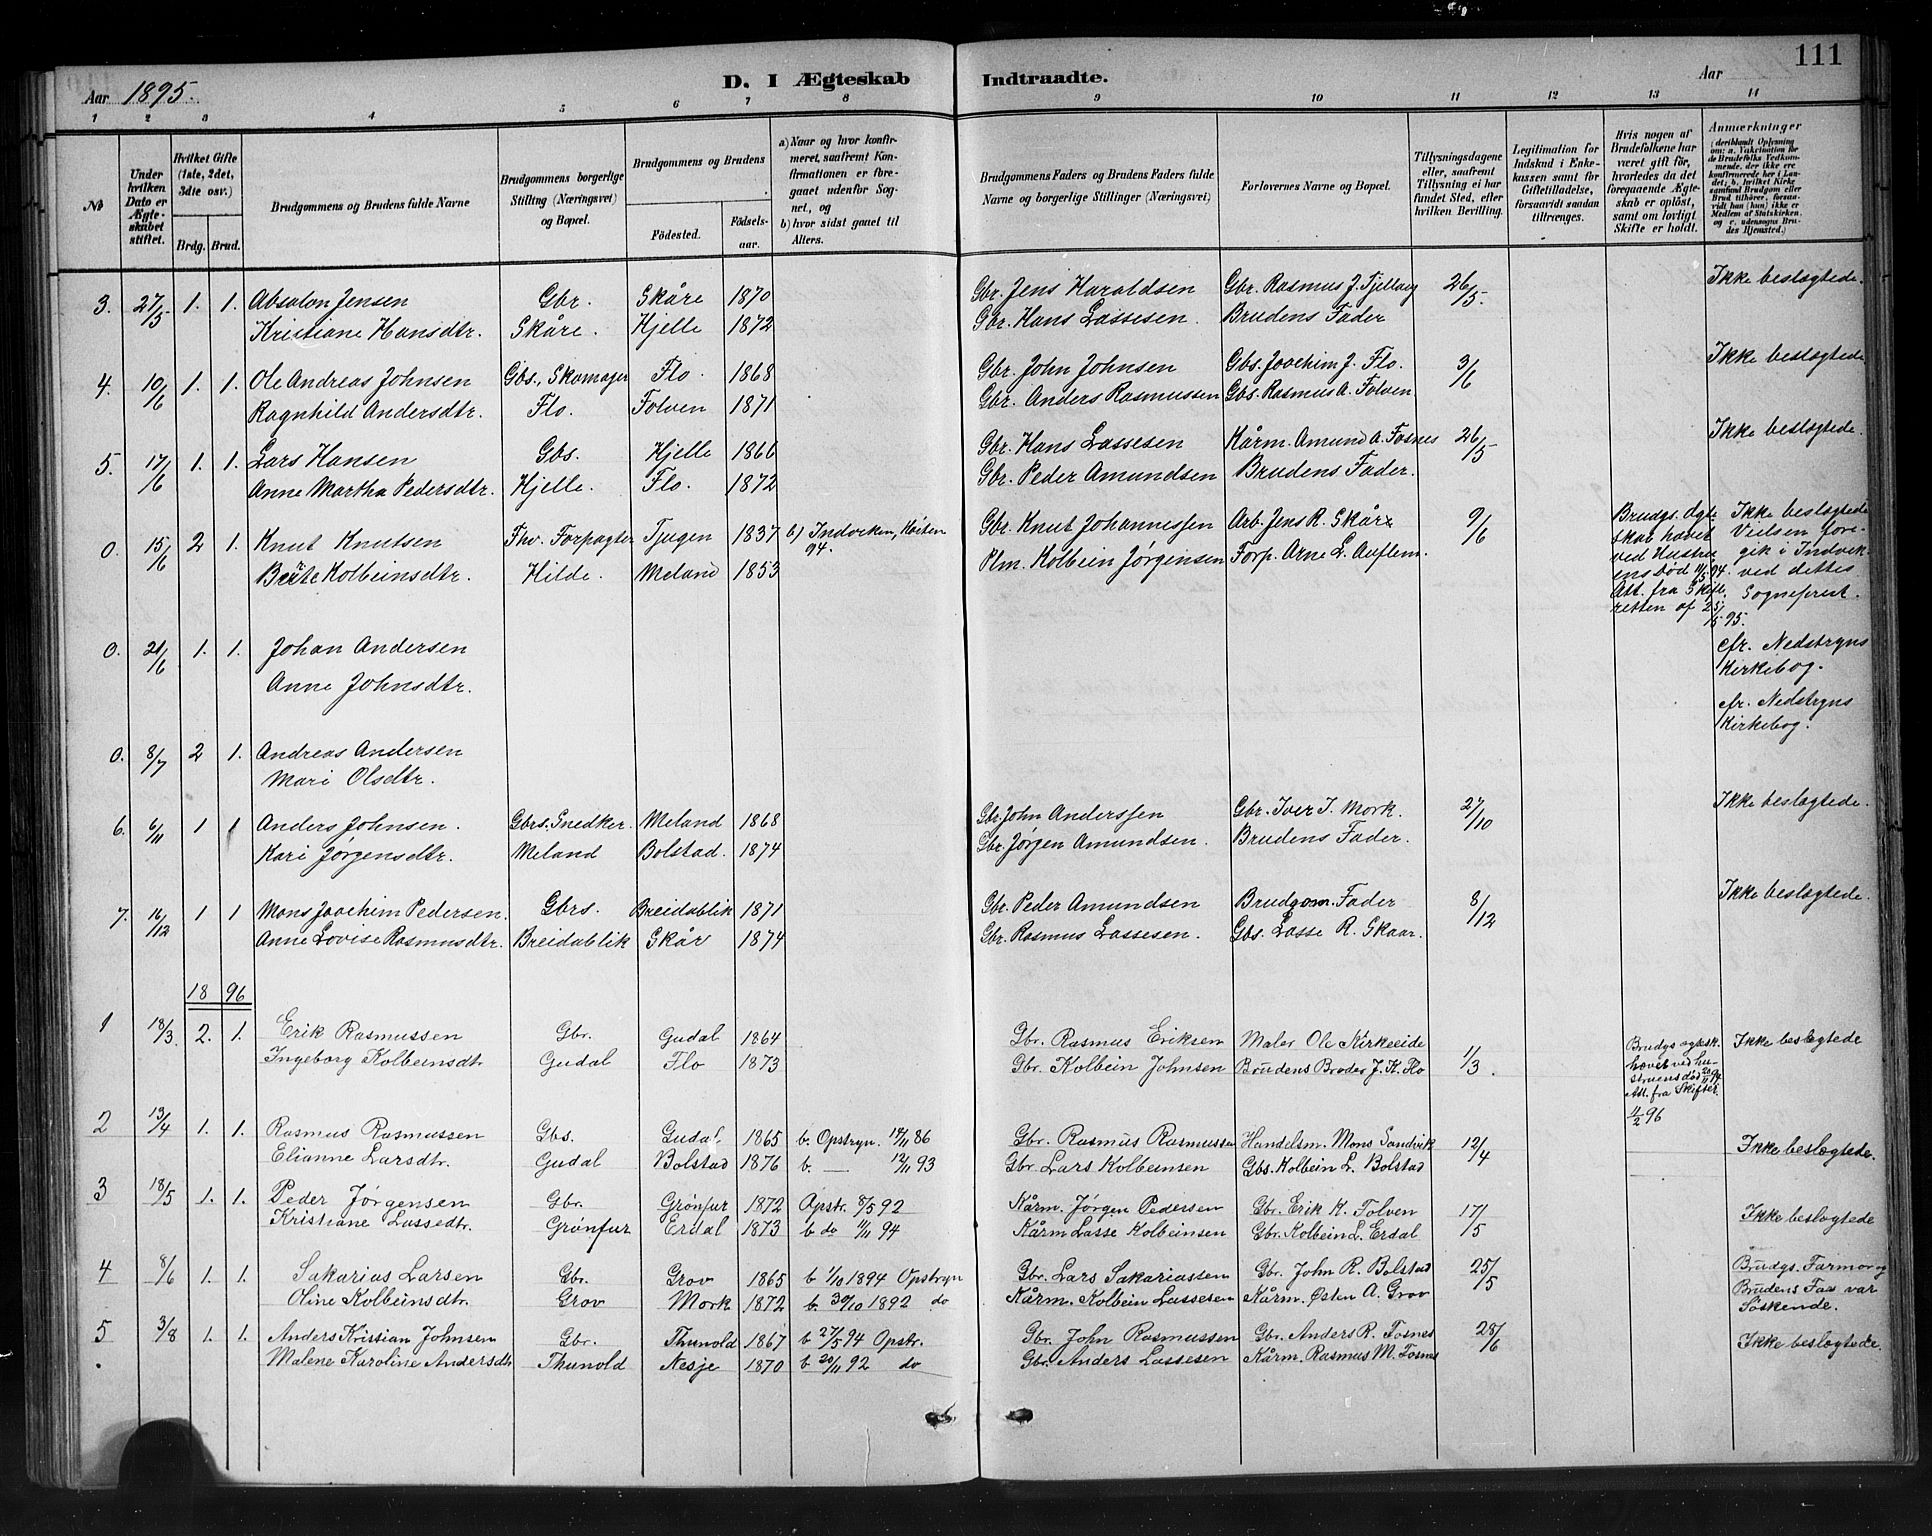 111
Aar 1895. D. I Ægteskab Indtraadte. Aar
1 2 3 4 5 6 7 8 9 10 11 12 13 14
No
Under hvilken Dato er Ægteskabet stiftet.
Hvilket Gifte (1ste, 2det, 3dte osv.)
Brdg. Brud.
Brudgommens og Brudens fulde Navne
Brudgommens borgerlige Stilling (Næringsvei) og Bopæl.
Brudgommens og Brudens
Fødested. Fødselsaar.
a) Naar og hvor konfirmeret, saafremt Konfirmationen er foregaaet udenfor Sognet, og
b) hvor sidst gaaet til Alters.
Brudgommens Faders og Brudens Faders fulde Navne og borgerlige Stillinger (Næringsvei)
Forlovernes Navne og Bopæl.
Tillysningsdagene eller, saafremt Tillysning ei har fundet Sted, efter hvilken Bevilling.
Legitimation for Indskud i Enkekassen samt for Giftetilladelse, forsaavidt saadan tiltrænges.
Hvis nogen af Brudefolkene har været gift før, hvorledes da det foregaaende Ægteskab er opløst, samt om lovligt Skifte er holdt.
Anmærkninger (deriblandt Oplysning om: a. Vakcination for de Brudefolks Vedkommende, der ikke ere konfirmerede her i Landet; b. hvilket Kirkesamfund Brudgom eller Brud tilhører, forsaavidt han (hun) ikke er Medlem af Statskirken, og c. udensogns Brudes Hjemsted.)
3. 27/5 1. 1. Absalon Jensen Gbr. Skåre 1870 Gbr. Jens Haraldsen Gbr. Rasmus J. Fjellvog 26/5. Ikke beslægtede.
Kristiane Hansdtr. Skåre. Hjelle 1872 Gbr. Hans Lassesen. Brudens Fader
4. 10/6 1. 1. Ole Andreas Johnsen Gbs., Skomager Flo. 1868 Gbr. John Johnsen Gbs. Joachim J. Flo. 3/6 Ikke beslægtede
Ragnhild Andersdtr. Flo. Folven 1871 Gbr. Anders Rasmussen Gbs. Rasmus A. Folven
5. 17/6 1. 1. Lars Hansen Gbs. Hjelle 1866 Gbr. Hans Lassesen Kårm. Amund A. Fosnes 26/5 Ikke beslægtede.
Anne Martha Pedersdtr. Hjelle. Flo. 1872 Gbr. Peder Amundsen Brudens Fader.
0. 15/6 2 1. Knut Knutsen Fhv. Forpagter Tjugen 1837 b) Indviken, Høsten 94. Gbr. Knut Johannessen Arb. Jens R. Skåre 9/6
Berte Kolbeinsdtr. Hilde. Meland 1853 Plm. Kolbein Jørgensen Forp. Arne L. Auflem.
Brudgs. Ægteskab hævet ved Hustruens Død 11/5 94. Att. fra Skifteretten af 25/5 95.
Ikke beslægtede Vielsen foregik i Indvik ved dettes Sognepræst.
0. 21/6 1. 1. Johan Andersen cfr. Nedstryns Kirkebog.
Anne Johnsdtr.
0. 8/7 2 1. Andreas Andersen cfr. Nedstryns Kirkebog.
Mari Olsdtr.
6. 6/11 1 1 Anders Johnsen. Gbrs. Snedker. Meland 1868 Gbr. John Anderssen Gbr. Iver I. Mork. 27/10 Ikke beslægtede.
Kari Jørgensdtr. Meland Bolstad. 1874 Gbr. Jørgen Amundsen. Brudens Fader.
7. 16/12 1 1 Mons Joachim Pedersen. Gbrs. Breidablik 1871 Gbr. Peder Amundsen Brudgom. Fader 8/12 Ikke beslægtede.
Anne Lovise Rasmusdtr. Breidablik Skår 1874 Gbr. Rasmus Lassesen. Gbs. Lasse R. Skaar.
1896
1 18/3. 2. 1. Erik Rasmussen Gbr. Gudal 1864 Gbr. Rasmus Eriksen Maler Ole Kirkeeide 1/3. Ikke beslægtede
Ingeborg Kolbeinsdtr Gudal Flo 1873 Gbr. Kolbein Johnsen Brudens Broder J. K. Flo
Brudgs ægtesk. hævet ved hustruens død 20/11 94. Att. fra Skifter. 4/2 96
2 13/4 1. 1. Rasmus Rasmussen Gbs. Gudal. 1865 b. Opstryn. 14/11 86 Gbr. Rasmus Rasmussen Handelsm. Mons Sandvik 12/4 Ikke beslægtede.
Elianne Larsdtr. Gudal Bolstad 1876 b. — 12/11 93 Gbr. Lars Kolbeinsen Gbs. Kolbein L. Bolstad
3 18/5 1. 1. Peder Jørgensen Gbr. Grønfur 1872 Opstr. 8/5 92 Kårm. Jørgen Pedersen Gbr. Erik K. Folven 17/5 Ikke beslægtede
Kristiane Lassedtr. Grønfur Erdal 1873 b do 11/11 94 Kårm Lasse Kolbeinsen Gbr. Kolbein L. Erdal
4 8/6 1. 1. Sakarias Larsen Gbr. Grov 1865 b 1/10 1894 Opstryn Gbr. Lars Sakariassen Gbr. John R. Bolstad 25/5 Brudgs. Farmor og
Oline Kolbeinsdtr. Grov Mork 1872 b. 30/10 1892 do Kårm. Kolbein Lassesen Kårm. Østen A. Grov Brudens Far var Søskende.
5 3/8 1. 1. Anders Kristian Johnsen Gbr. Thunold 1867 b 27/5 94 Opstr. Gbr. John Rasmussen Gbr. Anders R. Fosnes 28/6 Ikke beslægtede.
Malene Karoline Andersdtr Thunold Nesje 1870 b 20/11 92 do Gbr. Anders Lassesen Kårm. Rasmus M. Fosnes